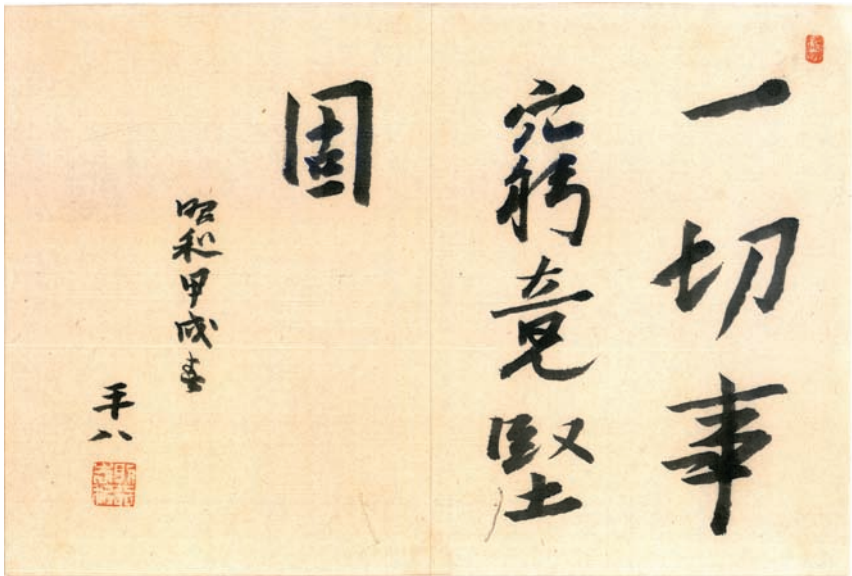 一切事
窮竟堅
固
昭和甲戌春
平八